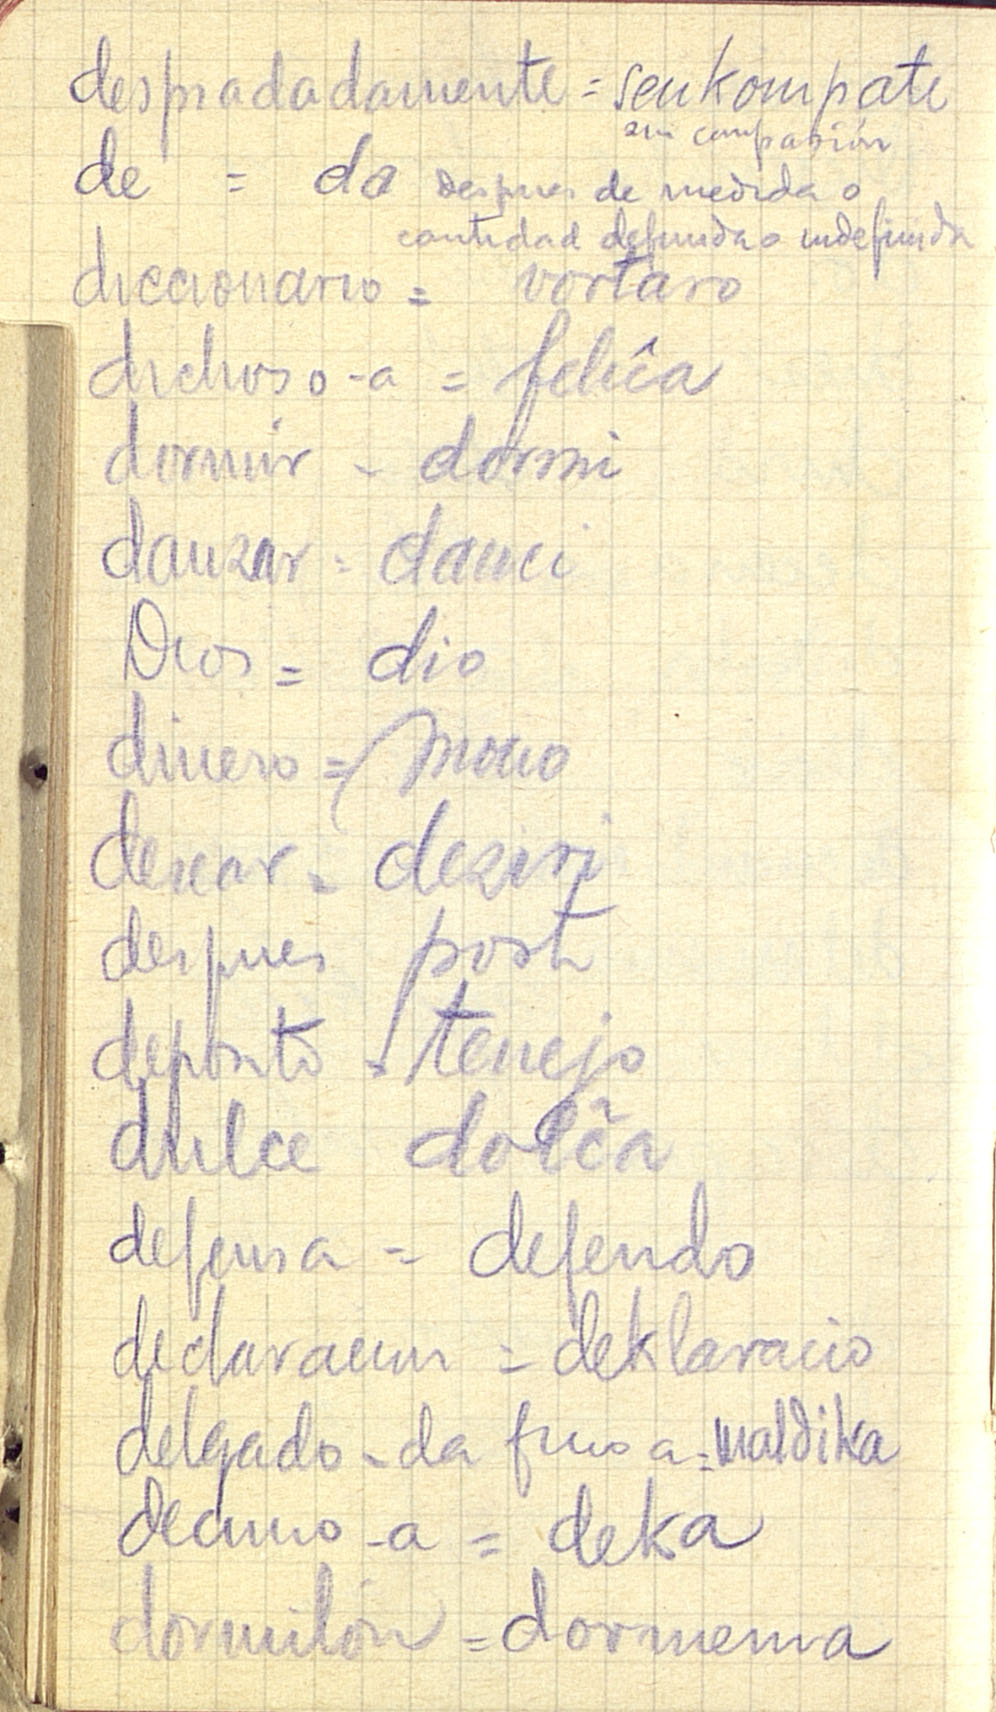 despiadadamente = senkompate
sin compasión
de = da Despues de medida o
cantidad definida o indefinida
diccionario = vortaro
dichoso -a = feliĉa
dormir - dormi
danzar = danci
Dios = dio
dinero = mono
desear = deziri
despues post
deposito = tenejo
dulce dolĉa
defensa = defendo
declaracion = deklaracio
delgado - da fino a = maldika
decimo -a = deka
dormilón = dormema